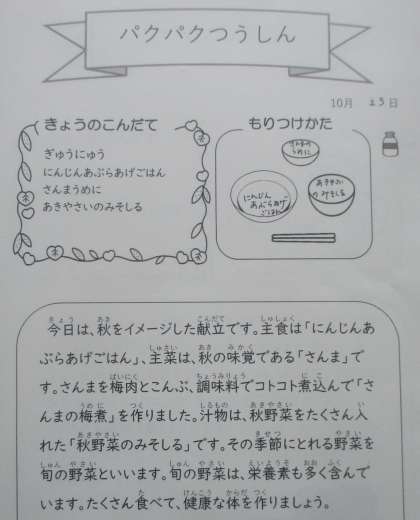 パクパクつうしん
10月 23日
きょうのこんだて
ぎゅうにゅう
にんじんあぶらあげごはん
さんまうめに
あきやさいのみそしる
もりつけかた
さんまの
うめに
にんじん
あぶらあげ
ごはん
あきやさい
のみそしる
今日は、秋をイメージした献立です。主食は「にんじんあ
ぶらあげごはん」、主菜は、秋の味覚である「さんま」で
す。さんまを梅肉とこんぶ、調味料でコトコト煮込んで「さ
んまの梅煮」を作りました。汁物は、秋野菜をたくさん入
れた「秋野菜のみそしる」です。その季節にとれる野菜を
旬の野菜といいます。旬の野菜は、栄養素も多く含んで
います。たくさん食べて、健康な体を作りましょう。